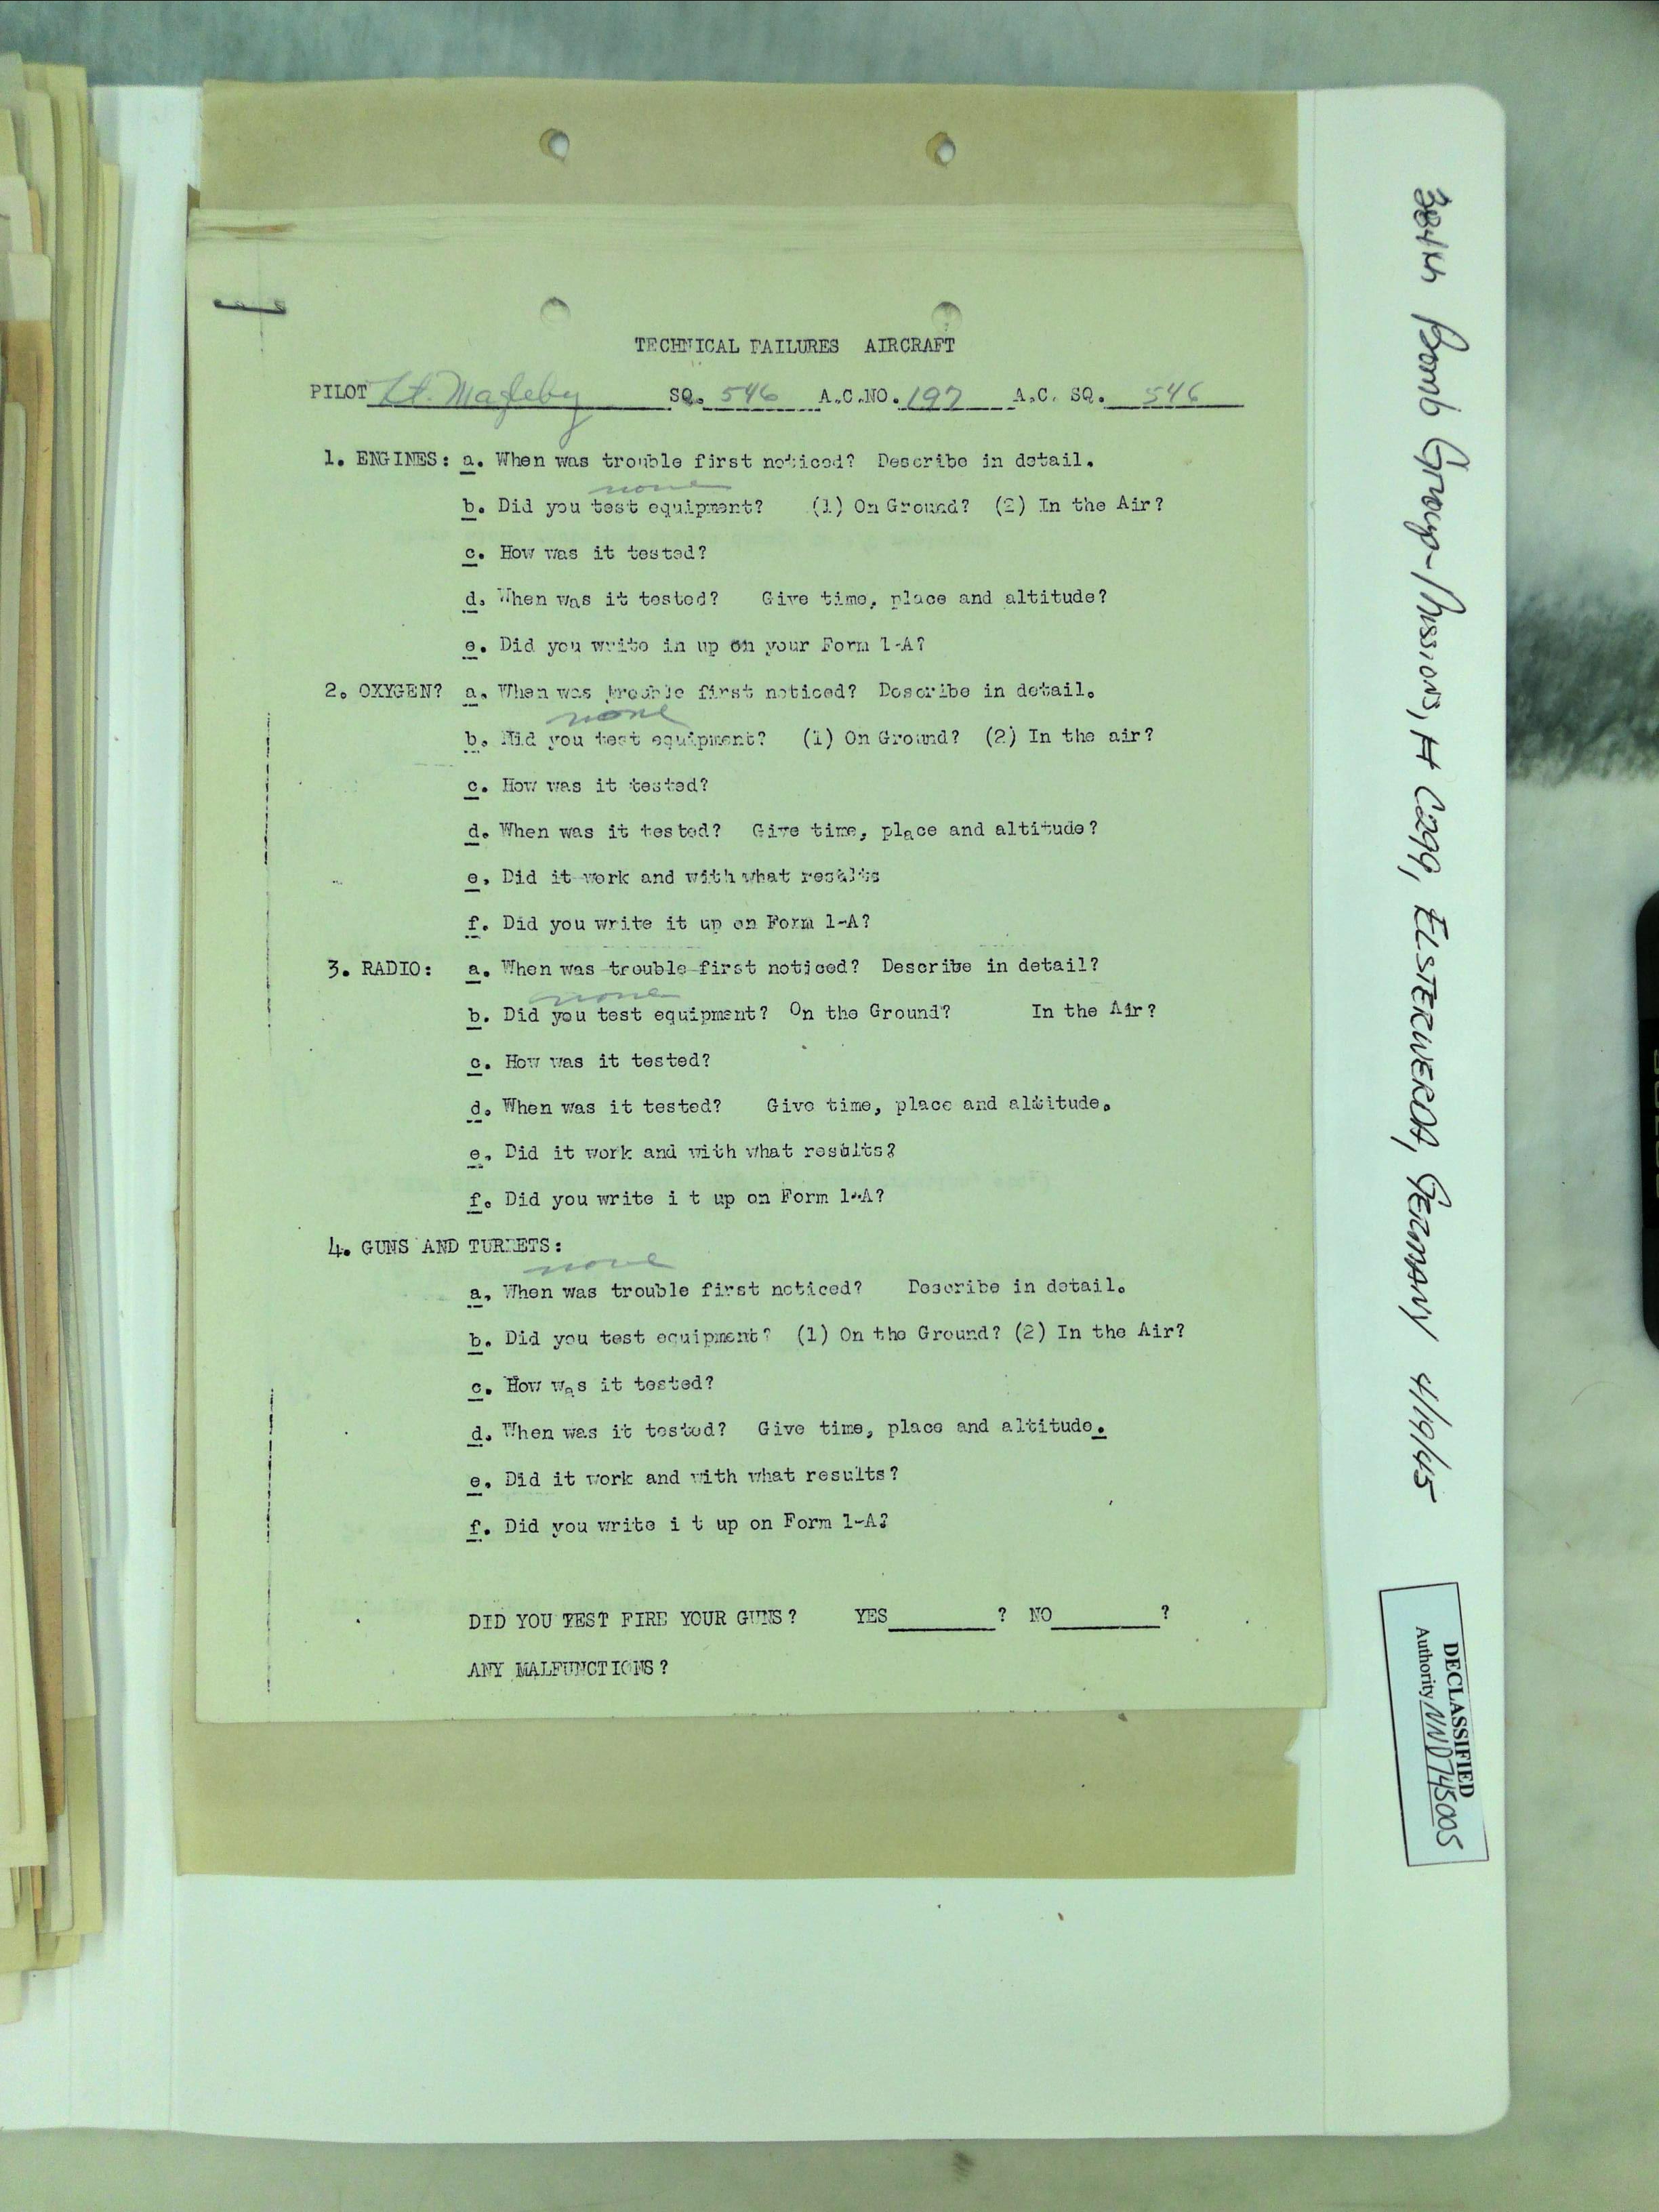 TECHNICAL FAILURES AIRCRAFT
PILOT Lt. Magleby SQ. 546 A.C.NO. 197 A.C. SQ. 546
1. ENGINES: a. When was trouble first noticed? Describe in detail.
none
b. Did you test equipment? (1) On Ground? (2) In the Air?
c. How was it tested?
d. When was it tested? Give time, place and altitude?
e. Did you write in up on your Form 1-A?
2. OXYGEN? a. When was trouble first noticed? Describe in detail.
none
b. Did you test equipment? (1) On Ground? (2) In the air?
c. How was it tested?
d. When was it tested? Give time, place and altitude?
e. Did it work and with what results
f. Did you write it up on Form 1-A?
3. RADIO: a. When was trouble first noticed? Describe in detail?
none
b. Did you test equipment? On the Ground? In the Air?
c. How was it tested?
d. When was it tested? Give time, place and altitude.
e. Did it work and with what results?
f. Did you write i t up on Form 1-A?
4. GUNS AND TURRETS:
none
a. When was trouble first noticed? Describe in detail.
b. Did you test equipment? (1) On the Ground? (2) In the Air?
c. How was it tested?
d. When was it tested? Give time, place and altitude.
e. Did it work and with what results?
f. Did you write i t up on Form 1-A?
DID YOU TEST FIRE YOUR GUNS? YES ? NO ?
ANY MALFUNCTIONS?
384th Bomb Group-Missions, A C299, ELSTERWERDA, GERMANY 4/19/45
DECLASSIFIED
Authority NND 745005